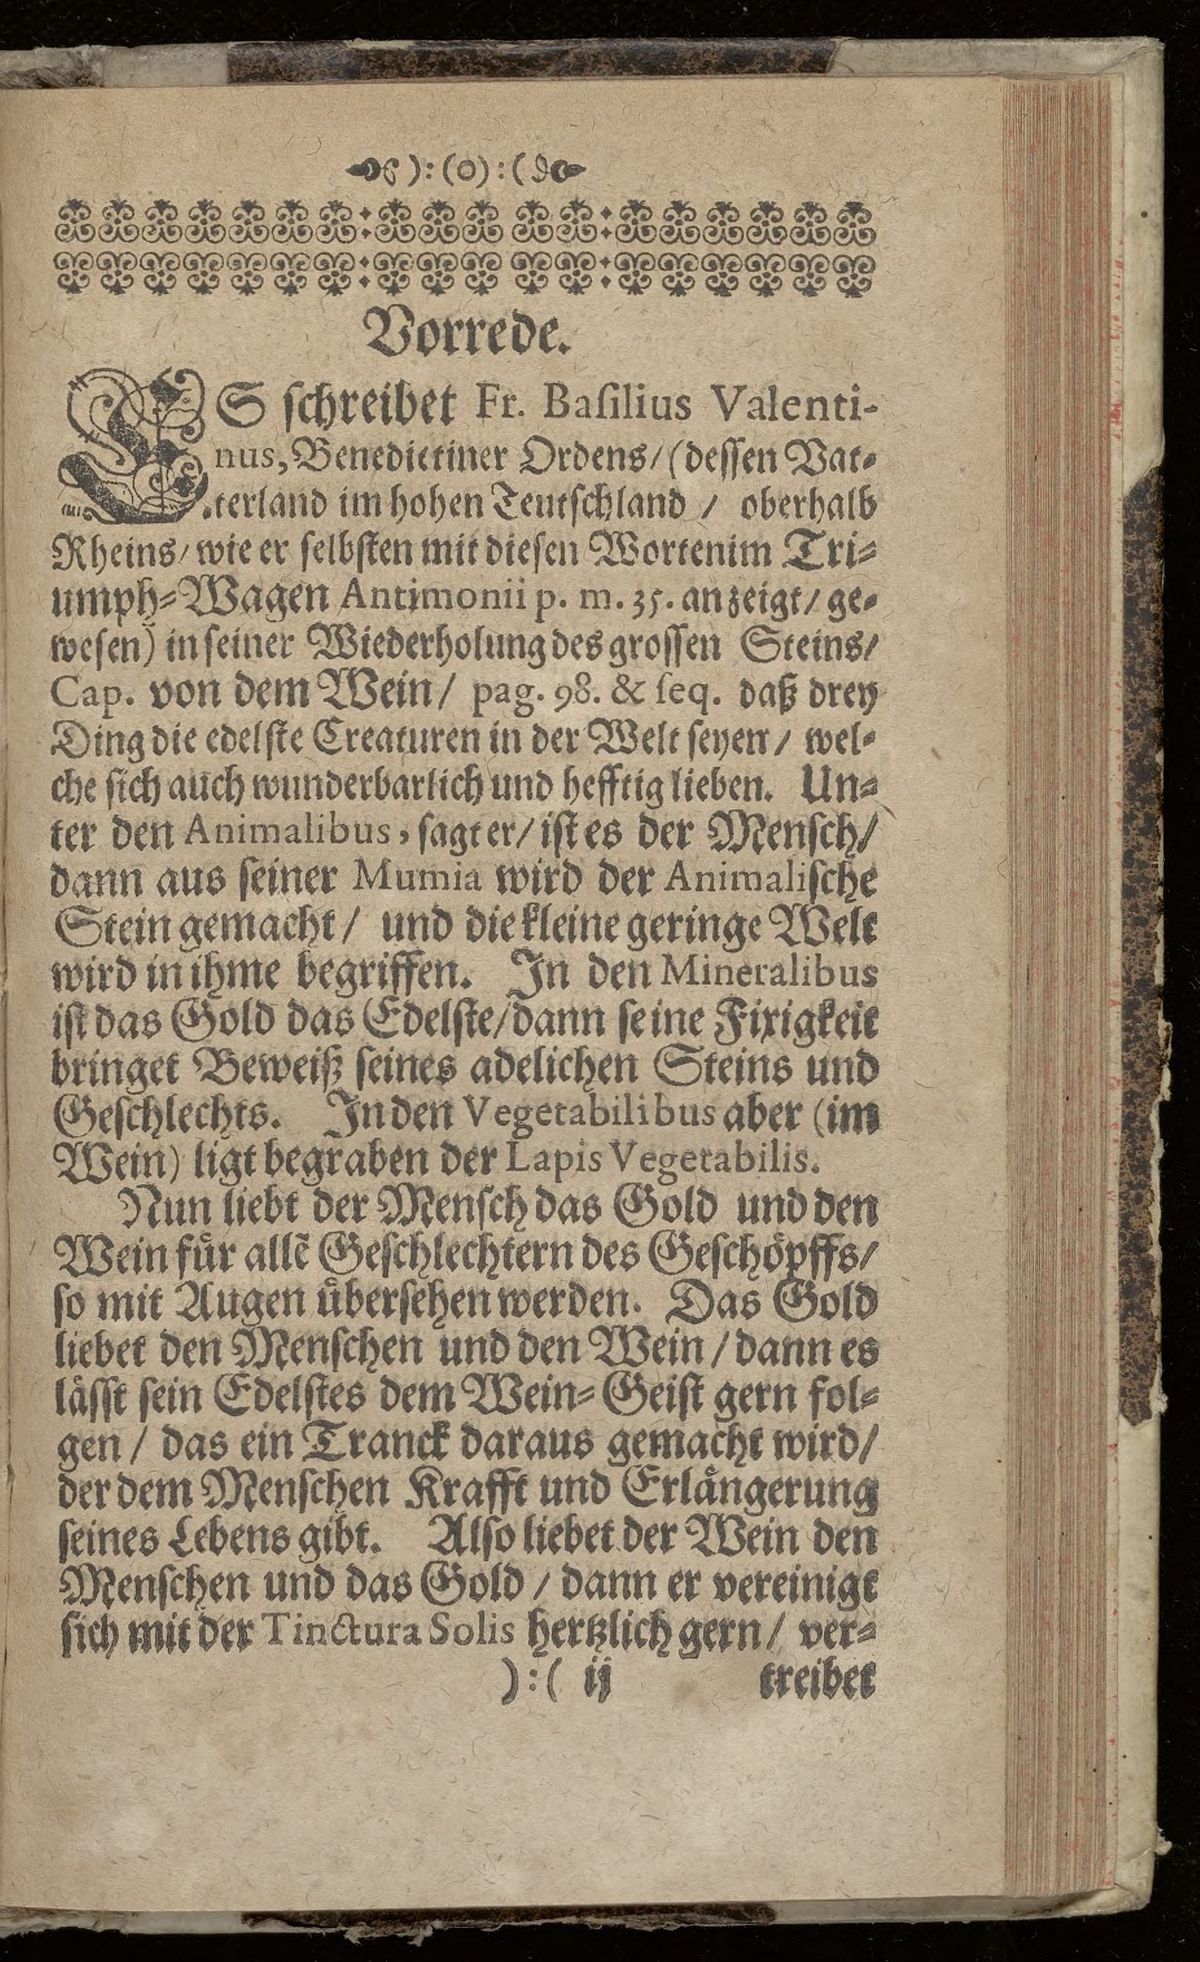 ):(o):(
Vorrede.
ES ſchreibet Fr. Baſilius Valenti-
nus, Benedictiner Ordens/ (deſſen Vat-
terland im hohen Teutſchland / oberhalb
Rheins/ wie er ſelbſten mit dieſen Worten im Tri-
umph-Wagen Antimonii p. m. 35. anzeigt/ ge-
weſen) in ſeiner Wiederholung des groſſen Steins/
Cap. von dem Wein/ pag. 98. & ſeq. daß drey
Ding die edelſte Creaturen in der Welt ſeyen/ wel-
che ſich auch wunderbarlich und hefftig lieben. Un-
ter den Animalibus, ſagt er/ iſt es der Menſch/
dann aus ſeiner Mumia wird der Animaliſche
Stein gemacht/ und die kleine geringe Welt
wird in ihme begriffen. In den Mineralibus
iſt das Gold das Edelſte/ dann ſeine Fixigkeit
bringet Beweiß ſeines adelichen Steins und
Geſchlechts. In den Vegetabilibus aber (im
Wein) ligt begraben der Lapis Vegetabilis.
Nun liebt der Menſch das Gold und den
Wein fuͤr allẽ Geſchlechtern des Geſchoͤpffs/
ſo mit Augen uͤberſehen werden. Das Gold
liebet den Menſchen und den Wein/ dann es
laͤſſt ſein Edelſtes dem Wein-Geiſt gern fol-
gen/ das ein Tranck daraus gemacht wird/
der dem Menſchen Krafft und Erlaͤngerung
ſeines Lebens gibt. Alſo liebet der Wein den
Menſchen und das Gold/ dann er vereinigt
ſich mit der Tinctura Solis hertzlich gern/ ver-
):( ij treibet